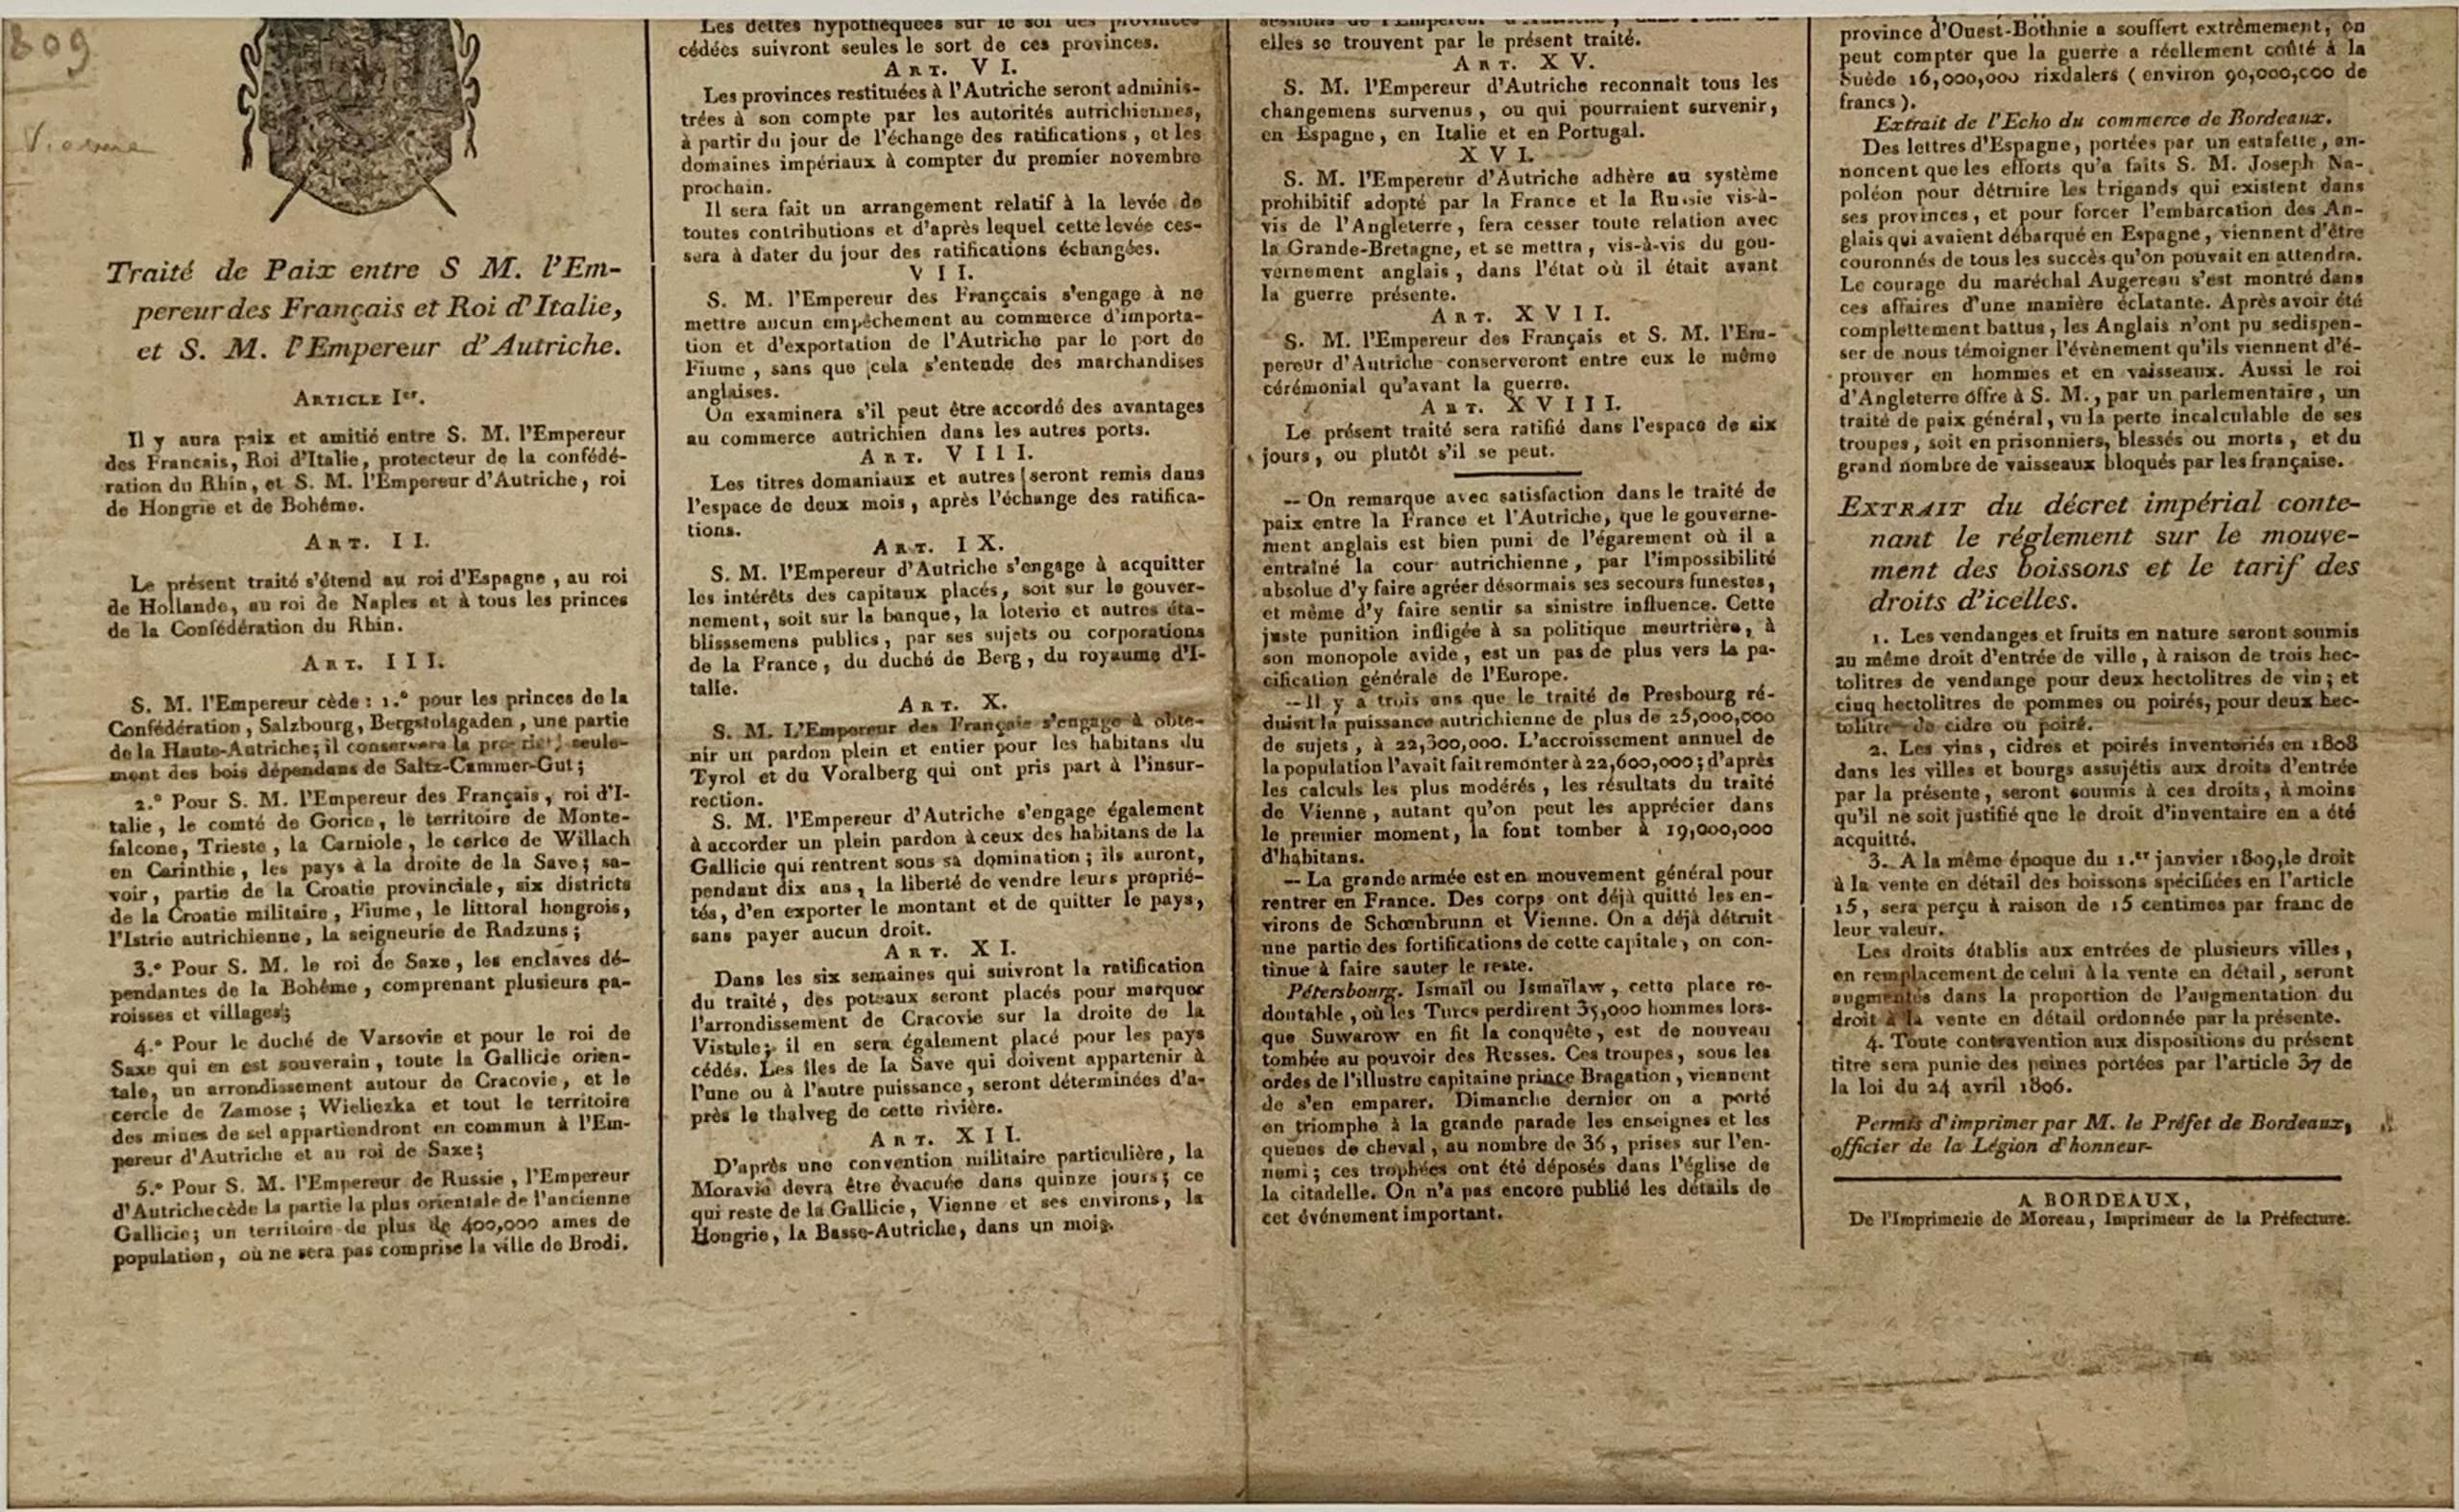 809
Vienne
Traité de Paix entre S M. l'Em-
pereur des Français et Roi d'Italie,
et S. M. l'Empereur d'Autriche.
ARTICLE Ier.
Il y aura paix et amitié entre S. M. l'Empereur
des Francais, Roi d'Italie, protecteur de la confédé-
ration du Rhin, et S. M. l'Empereur d'Autriche, roi
de Hongrie et de Bohême.
ART. II.
Le présent traité s'étend au roi d'Espagne, au roi
de Hollande, au roi de Naples et à tous les princes
de la Confédération du Rhin.
ART. III.
S. M. l'Empereur cède : 1.° pour les princes de la
Confédération, Salzbourg, Bergstolsgaden, une partie
de la Haute-Autriche; il conservera la seule-
ment des bois dépendans de Saltz-Cammer-Gut;
2.° Pour S. M. l'Empereur des Français, roi d'I-
talie, le comté de Gorice, le territoire de Monte-
falcone, Trieste, la Carniole, le cerlce de Willach
en Carinthie, les pays à la droite de la Save; sa-
voir, partie de la Croatie provinciale, six districts
de la Croatie militaire, Fiume, le littoral hongrois,
l'Istrie autrichienne, la seigneurie de Radzuns;
3.° Pour S. M. le roi de Saxe, les enclaves dé-
pendantes de la Bohême, comprenant plusieurs pa-
roisses et villages;
4.° Pour le duché de Varsovie et pour le roi de
Saxe qui en est souverain, toute la Gallicie orien-
tale, un arrondissement autour de Cracovie, et le
cercle de Zamose; Wieliezka et tout le territoire
des mines de sel appartiendront en commun à l'Em-
pereur d'Autriche et au roi de Saxe;
5.° Pour S. M. l'Empereur de Russie, l'Empereur
d'Autriche cède la partie la plus orientale de l'ancienne
Gallicie; un territoire de plus de 400,000 ames de
population, où ne sera pas comprise la ville de Brodi.
Les dettes hypothéquées sur le sol des provinces
cédées suivront seules le sort de ces provinces.
ART. VI.
Les provinces restituées à l'Autriche seront adminis-
trées à son compte par les autorités autrichiennes,
à partir du jour de l'échange des ratifications, et les
domaines impériaux à compter du premier novembre
prochain.
Il sera fait un arrangement relatif à la levée de
toutes contributions et d'après lequel cette levée ces-
sera à dater du jour des ratifications échangées.
VII.
S. M. l'Empereur des Françcais s'engage à ne
mettre aucun empêchement au commerce d'importa-
tion et d'exportation de l'Autriche par le port de
Fiume, sans que cela s'entende des marchandises
anglaises.
On examinera s'il peut être accordé des avantages
au commerce autrichien dans les autres ports.
ART. VIII.
Les titres domaniaux et autres seront remis dans
l'espace de deux mois, après l'échange des ratifica-
tions.
ART. IX.
S. M. l'Empereur d'Autriche s'engage à acquitter
les intérêts des capitaux placés, soit sur le gouver-
nement, soit sur la banque, la loterie et autres éta-
blisssemens publics, par ses sujets ou corporations
de la France, du duché de Berg, du royaume d'I-
talie.
ART. X.
S. M. L'Empereur des Français s'engage à obte-
nir un pardon plein et entier pour les habitans du
Tyrol et du Voralberg qui ont pris part à l'insur-
rection.
S. M. l'Empereur d'Autriche s'engage également
à accorder un plein pardon à ceux des habitans de la
Gallicie qui rentrent sous sa domination; ils auront,
pendant dix ans, la liberté de vendre leurs proprié-
tés, d'en exporter le montant et de quitter le pays,
sans payer aucun droit.
ART. XI.
Dans les six semaines qui suivront la ratification
du traité, des poteaux seront placés pour marquer
l'arrondissement de Cracovie sur la droite de la
Vistule; il en sera également placé pour les pays
cédés. Les îles de la Save qui doivent appartenir à
l'une ou à l'autre puissance, seront déterminées d'a-
près le thalveg de cette rivière.
ART. XII.
D'après une convention militaire particulière, la
Moravie devra être évacuée dans quinze jours; ce
qui reste de la Gallicie, Vienne et ses environs, la
Hongrie, la Basse-Autriche, dans un mois.
sessions de l'Empereur d'Autriche, dans l'état où
elles se trouvent par le présent traité.
ART. XV.
S. M. l'Empereur d'Autriche reconnaît tous les
changemens survenus, ou qui pourraient survenir,
en Espagne, en Italie et en Portugal.
XVI.
S. M. l'Empereur d'Autriche adhère au système
prohibitif adopté par la France et la Russie vis-à-
vis de l'Angleterre, fera cesser toute relation avec
la Grande-Bretagne, et se mettra, vis-à-vis du gou-
vernement anglais, dans l'état où il était avant
la guerre présente.
ART. XVII.
S. M. l'Empereur des Français et S. M. l'Em-
pereur d'Autriche conserveront entre eux le même
cérémonial qu'avant la guerre.
ART. XVIII.
Le présent traité sera ratifié dans l'espace de six
jours, ou plutôt s'il se peut.
— On remarque avec satisfaction dans le traité de
paix entre la France et l'Autriche, que le gouverne-
ment anglais est bien puni de l'égarement où il a
entraîné la cour autrichienne, par l'impossibilité
absolue d'y faire agréer désormais ses secours funestes,
et même d'y faire sentir sa sinistre influence. Cette
juste punition infligée à sa politique meurtrière, à
son monopole avide, est un pas de plus vers la pa-
cification générale de l'Europe.
— Il y a trois ans que le traité de Presbourg ré-
duisit la puissance autrichienne de plus de 25,000,000
de sujets, à 22,300,000. L'accroissement annuel de
la population l'avait fait remonter à 22,600,000; d'après
les calculs les plus modérés, les résultats du traité
de Vienne, autant qu'on peut les apprécier dans
le premier moment, la font tomber à 19,000,000
d'habitans.
— La grande armée est en mouvement général pour
rentrer en France. Des corps ont déjà quitté les en-
virons de Schœnbrunn et Vienne. On a déjà détruit
une partie des fortifications de cette capitale, on con-
tinue à faire sauter le reste.
Pétersbourg. Ismaïl ou Ismaïlaw, cette place re-
doutable, où les Turcs perdirent 35,000 hommes lors-
que Suwarow en fit la conquête, est de nouveau
tombée au pouvoir des Russes. Ces troupes, sous les
ordes de l'illustre capitaine prince Bragation, viennent
de s'en emparer. Dimanche dernier on a porté
en triomphe à la grande parade les enseignes et les
queues de cheval, au nombre de 36, prises sur l'en-
nemi; ces trophées ont été déposés dans l'église de
la citadelle. On n'a pas encore publié les détails de
cet événement important.
province d'Ouest-Bothnie a souffert extrêmement, on
peut compter que la guerre a réellement coûté à la
Suède 16,000,000 rixdalers (environ 90,000,000 de
francs).
Extrait de l'Echo du commerce de Bordeaux.
Des lettres d'Espagne, portées par un estafette, an-
noncent que les efforts qu'a faits S. M. Joseph Na-
poléon pour détruire les brigands qui existent dans
ses provinces, et pour forcer l'embarcation des An-
glais qui avaient débarqué en Espagne, viennent d'être
couronnés de tous les succès qu'on pouvait en attendre.
Le courage du maréchal Augereau s'est montré dans
ces affaires d'une manière éclatante. Après avoir été
complettement battus, les Anglais n'ont pu se dispen-
ser de nous témoigner l'évènement qu'ils viennent d'é-
prouver en hommes et en vaisseaux. Aussi le roi
d'Angleterre offre à S. M., par un parlementaire, un
traité de paix général, vu la perte incalculable de ses
troupes, soit en prisonniers, blessés ou morts, et du
grand nombre de vaisseaux bloqués par les française.
EXTRAIT du décret impérial conte-
nant le réglement sur le mouve-
ment des boissons et le tarif des
droits d'icelles.
1. Les vendanges et fruits en nature seront soumis
au même droit d'entrée de ville, à raison de trois hec-
tolitres de vendange pour deux hectolitres de vin; et
cinq hectolitres de pommes ou poirés, pour deux hec-
tolitre de cidre ou poiré.
2. Les vins, cidres et poirés inventoriés en 1808
dans les villes et bourgs assujétis aux droits d'entrée
par la présente, seront soumis à ces droits, à moins
qu'il ne soit justifié que le droit d'inventaire en a été
acquitté.
3. A la même époque du 1.er janvier 1809, le droit
à la vente en détail des boissons spécifiées en l'article
15, sera perçu à raison de 15 centimes par franc de
leur valeur.
Les droits établis aux entrées de plusieurs villes,
en remplacement de celui à la vente en détail, seront
augmentés dans la proportion de l'augmentation du
droit à la vente en détail ordonnée par la présente.
4. Toute contravention aux dispositions du présent
titre sera punie des peines portées par l'article 37 de
la loi du 24 avril 1806.
Permis d'imprimer par M. le Préfet de Bordeaux,
officier de la Légion d'honneur-
A BORDEAUX,
De l'Imprimerie de Moreau, Imprimeur de la Préfecture.